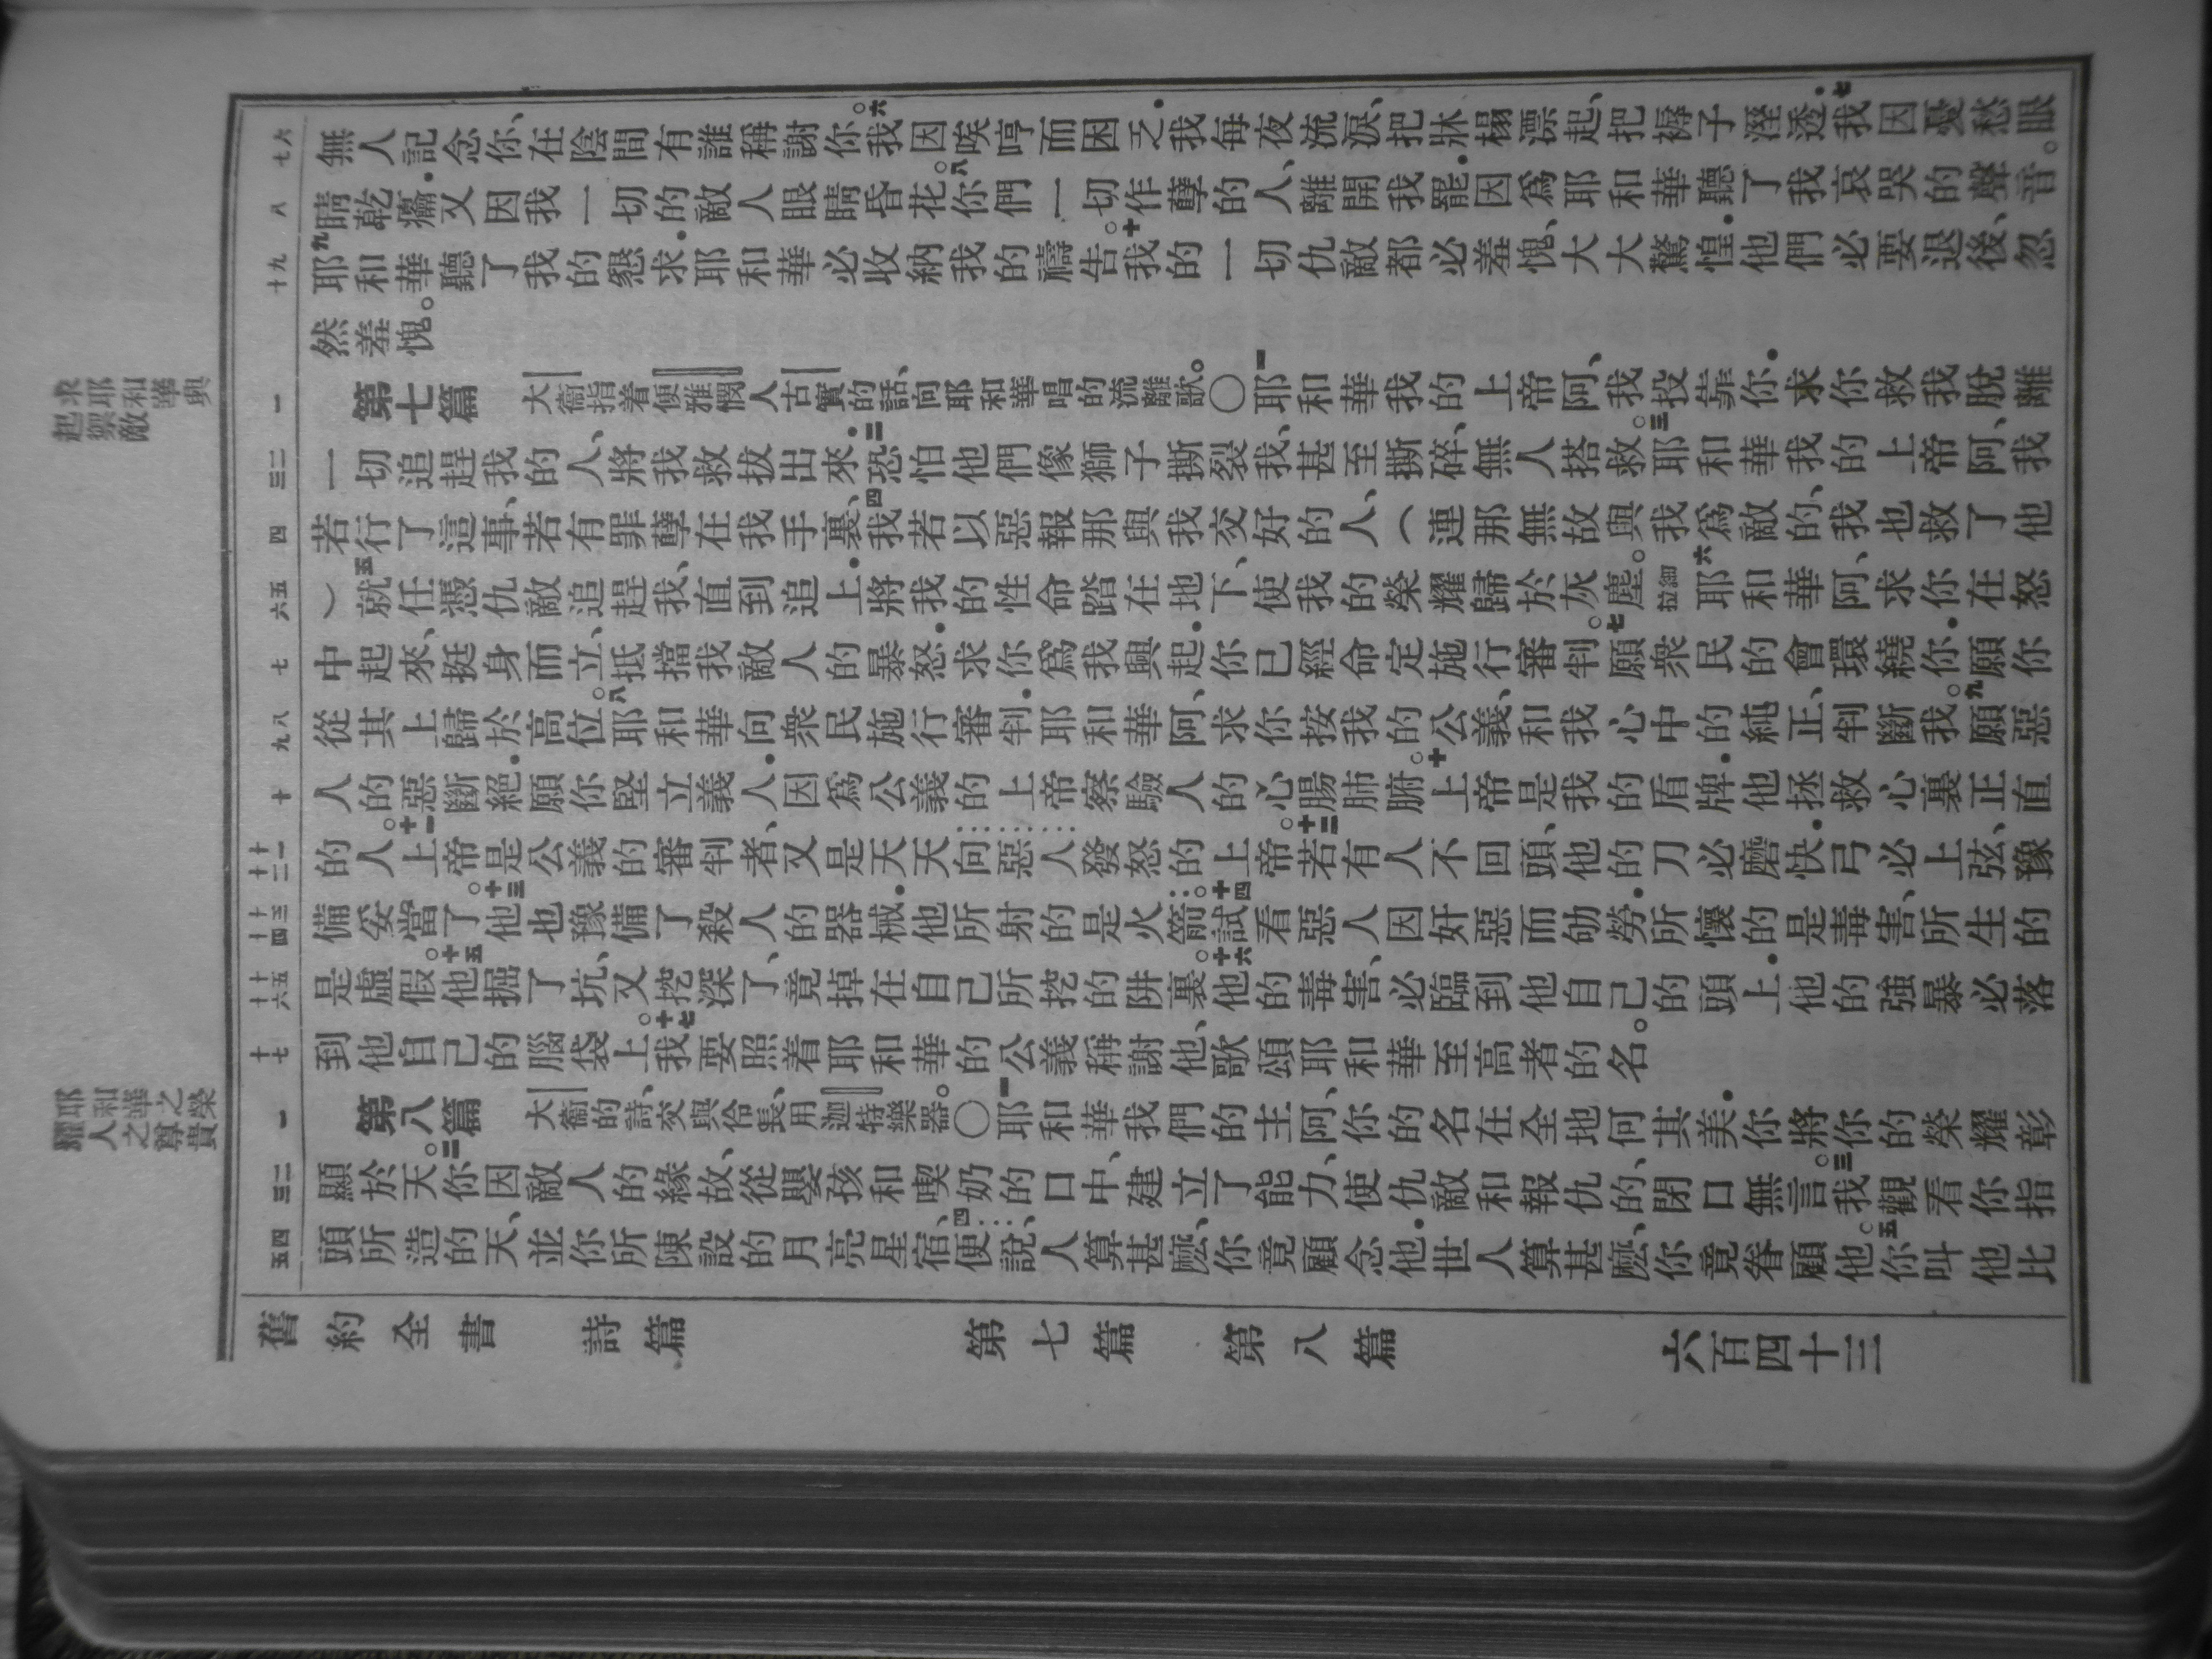 七六
無人記念你、在陰間有誰稱謝你。六我因唉哼而困乏.我每夜流淚、把牀榻漂起、把褥子溼透.七我因憂愁眼
八
睛乾癟.又因我一切的敵人眼睛昏花。八你們一切作孽的人、離開我罷.因爲耶和華聽了我哀哭的聲音。
十九
九耶和華聽了我的懇求.耶和華必收納我的禱告。十我的一切仇敵都必羞愧、大大驚惶.他們必要退後、忽
然羞愧。
求耶和華興
起禦敵
一
第七篇 大衞指着便雅憫人古實的話、向耶和華唱的流離歌。〇一耶和華我的上帝阿、我投靠你.求你救我脫離
三二
一切追趕我的人、將我救拔出來.二恐怕他們像獅子撕裂我、甚至撕碎、無人搭救。三耶和華我的上帝阿、我
四
若行了這事、若有罪孽在我手裏、四我若以惡報那與我交好的人、(連那無故與我爲敵的、我也救了他
六五
)五就任憑仇敵追趕我、直到追上.將我的性命踏在地下、使我的榮耀歸於灰塵。細拉 六耶和華阿、求你在怒
七
中起來、挺身而立、抵擋我敵人的暴怒.求你爲我興起.你已經命定施行審判。七願衆民的會環繞你.願你
九八
從其上歸於高位。八耶和華向衆民施行審判.耶和華阿、求你按我的公義、和我心中的純正、判斷我。九願惡
十
人的惡斷絕.願你堅立義人.因爲公義的上帝察驗人的心腸肺腑。十上帝是我的盾牌.他拯救心裏正直
十二十一
的人。十一上帝是公義的審判者、又是天天向惡人發怒的上帝。十二若有人不回頭、他的刀必磨快.弓必上弦、豫
十四十三
備妥當了。十三他也豫備了殺人的器械.他所射的是火箭。十四試看惡人因奸惡而劬勞.所懷的是毒害、所生的
十六十五
是虛假。十五他掘了坑、又挖深了、竟掉在自己所挖的阱裏。十六他的毒害、必臨到他自己的頭上.他的強暴必落
十七
到他自己的腦袋上。十七我要照着耶和華的公義稱謝他、歌頌耶和華至高者的名。
耶和華之榮
耀人之尊貴
一
第八篇 大衞的詩、交與伶長、用迦特樂器。〇一耶和華我們的主阿、你的名在全地何其美.你將你的榮耀彰
三二
顯於天。二你因敵人的緣故、從嬰孩和喫奶的口中、建立了能力、使仇敵和報仇的、閉口無言。三我觀看你指
五四
頭所造的天、並你所陳設的月亮星宿、四便說、人算甚麼、你竟顧念他.世人算甚麼、你竟眷顧他。五你叫他比
舊約全書 詩篇 第七篇 第八篇 六百四十三